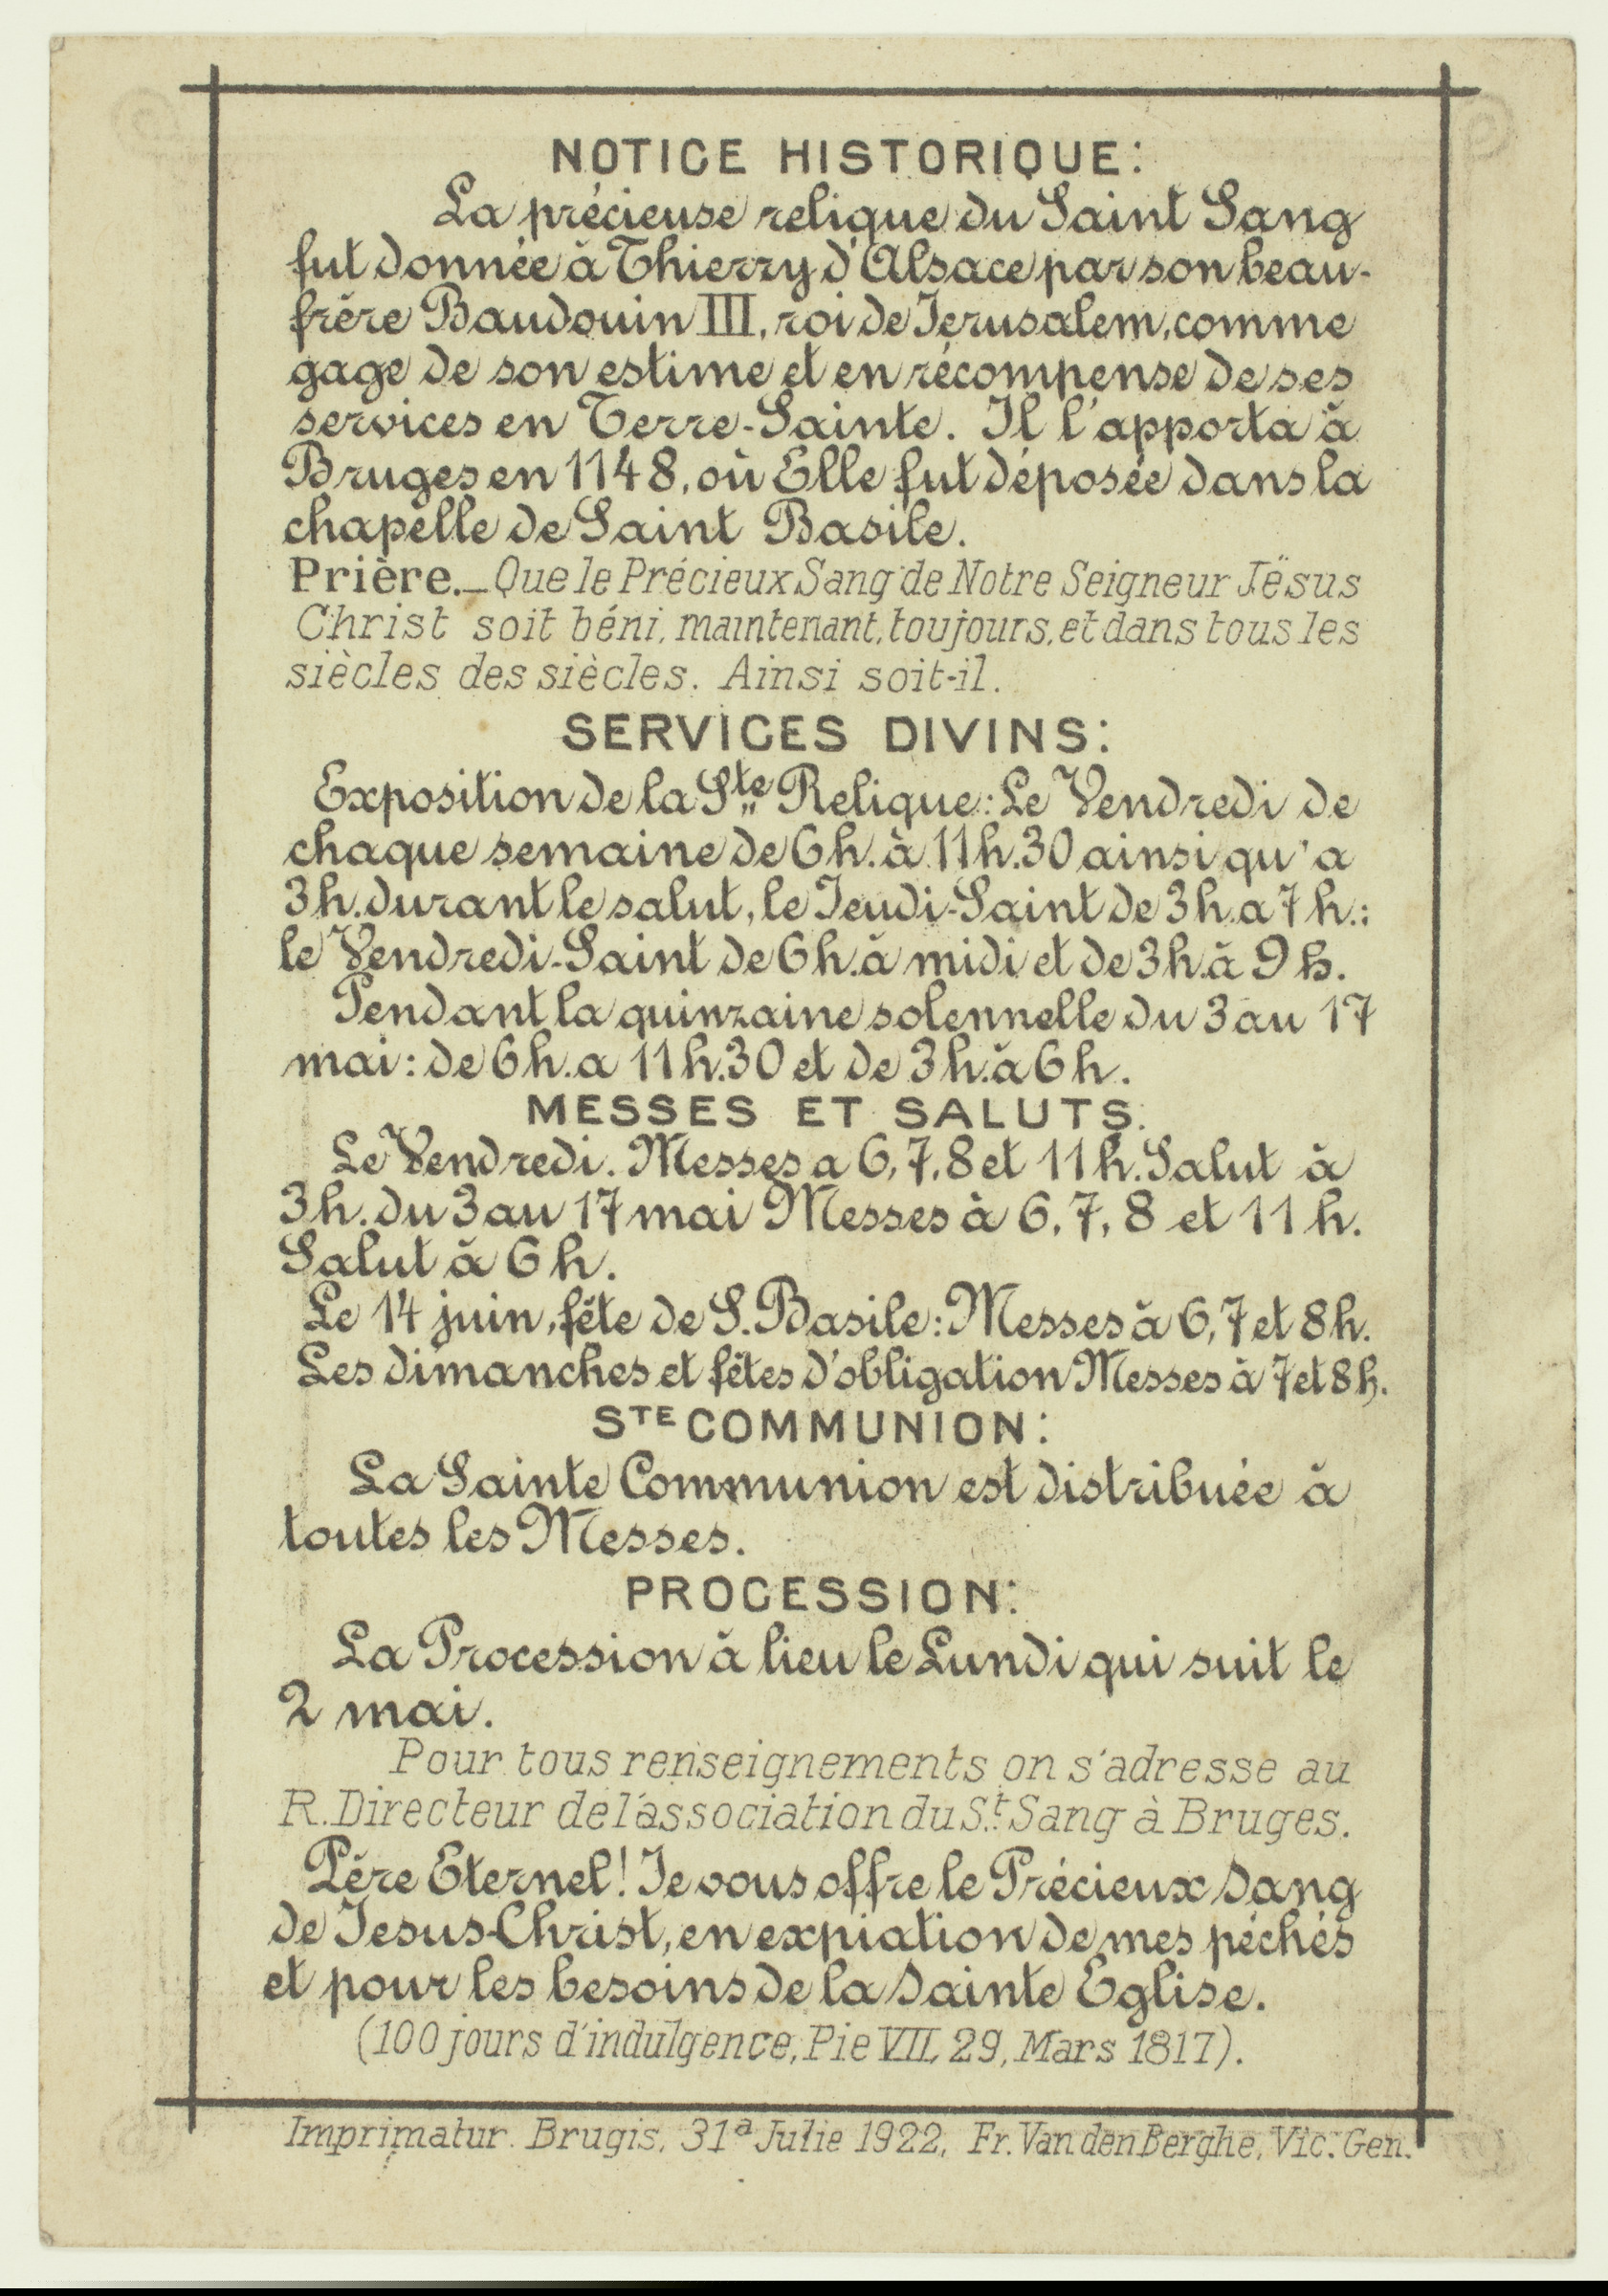 NOTICE HISTORIQUE:
La précieuse relique du Saint Sang
fut donnée à Thierry d'Alsace par son beau-
frère Baudouin III, roi de Jerusalem, comme
gage de son estime et en récompense de ses
services en Terre-Sainte. Il l'apporta à
Bruges en 1148, où Elle fut déposée dans la
chapelle de Saint Basile.
Prière._ Que le Précieux Sang de Notre Seigneur Jësus
Christ soit béni, maintenant, toujours, et dans tous les
siècles des siècles. Ainsi soit-il.
SERVICES DIVINS:
Exposition de la Ste Relique: Le Vendredi de
chaque semaine de 6h. à 11h.30 ainsi qu'a
3h. durant le salut, le Jeudi-Saint de 3h. a 7h.:
le Vendredi-Saint de 6h. à midi et de 3h. à 9h.
Pendant la quinzaine solennelle du 3 au 17
mai: de 6h. a 11h.30 et de 3h. à 6h.
MESSES ET SALUTS.
Le Vendredi. Messes a 6, 7, 8 et 11h. Salut à
3h. du 3 au 17 mai Messes à 6, 7, 8 et 11h.
Salut à 6h.
Le 14 juin, fête de S. Basile: Messes à 6, 7 et 8h.
Les dimanches et fêtes d'obligation Messes à 7 et 8h.
STE COMMUNION:
La Sainte Communion est distribuée à
toutes les Messes.
PROCESSION:
La Procession à lieu le Lundi qui suit le
2 mai.
Pour tous renseignements on s'adresse au
R. Directeur de l'association du St. Sang à Bruges.
Père Eternel! Je vous offre le Précieux Sang
de Jesus-Christ, en expiation de mes péchés
et pour les besoins de la Sainte Eglise.
(100 jours d'indulgence, Pie VII, 29, Mars 1817).
Imprimatur. Brugis, 31a Julie 1922, Fr. Van den Berghe, Vic. Gen.